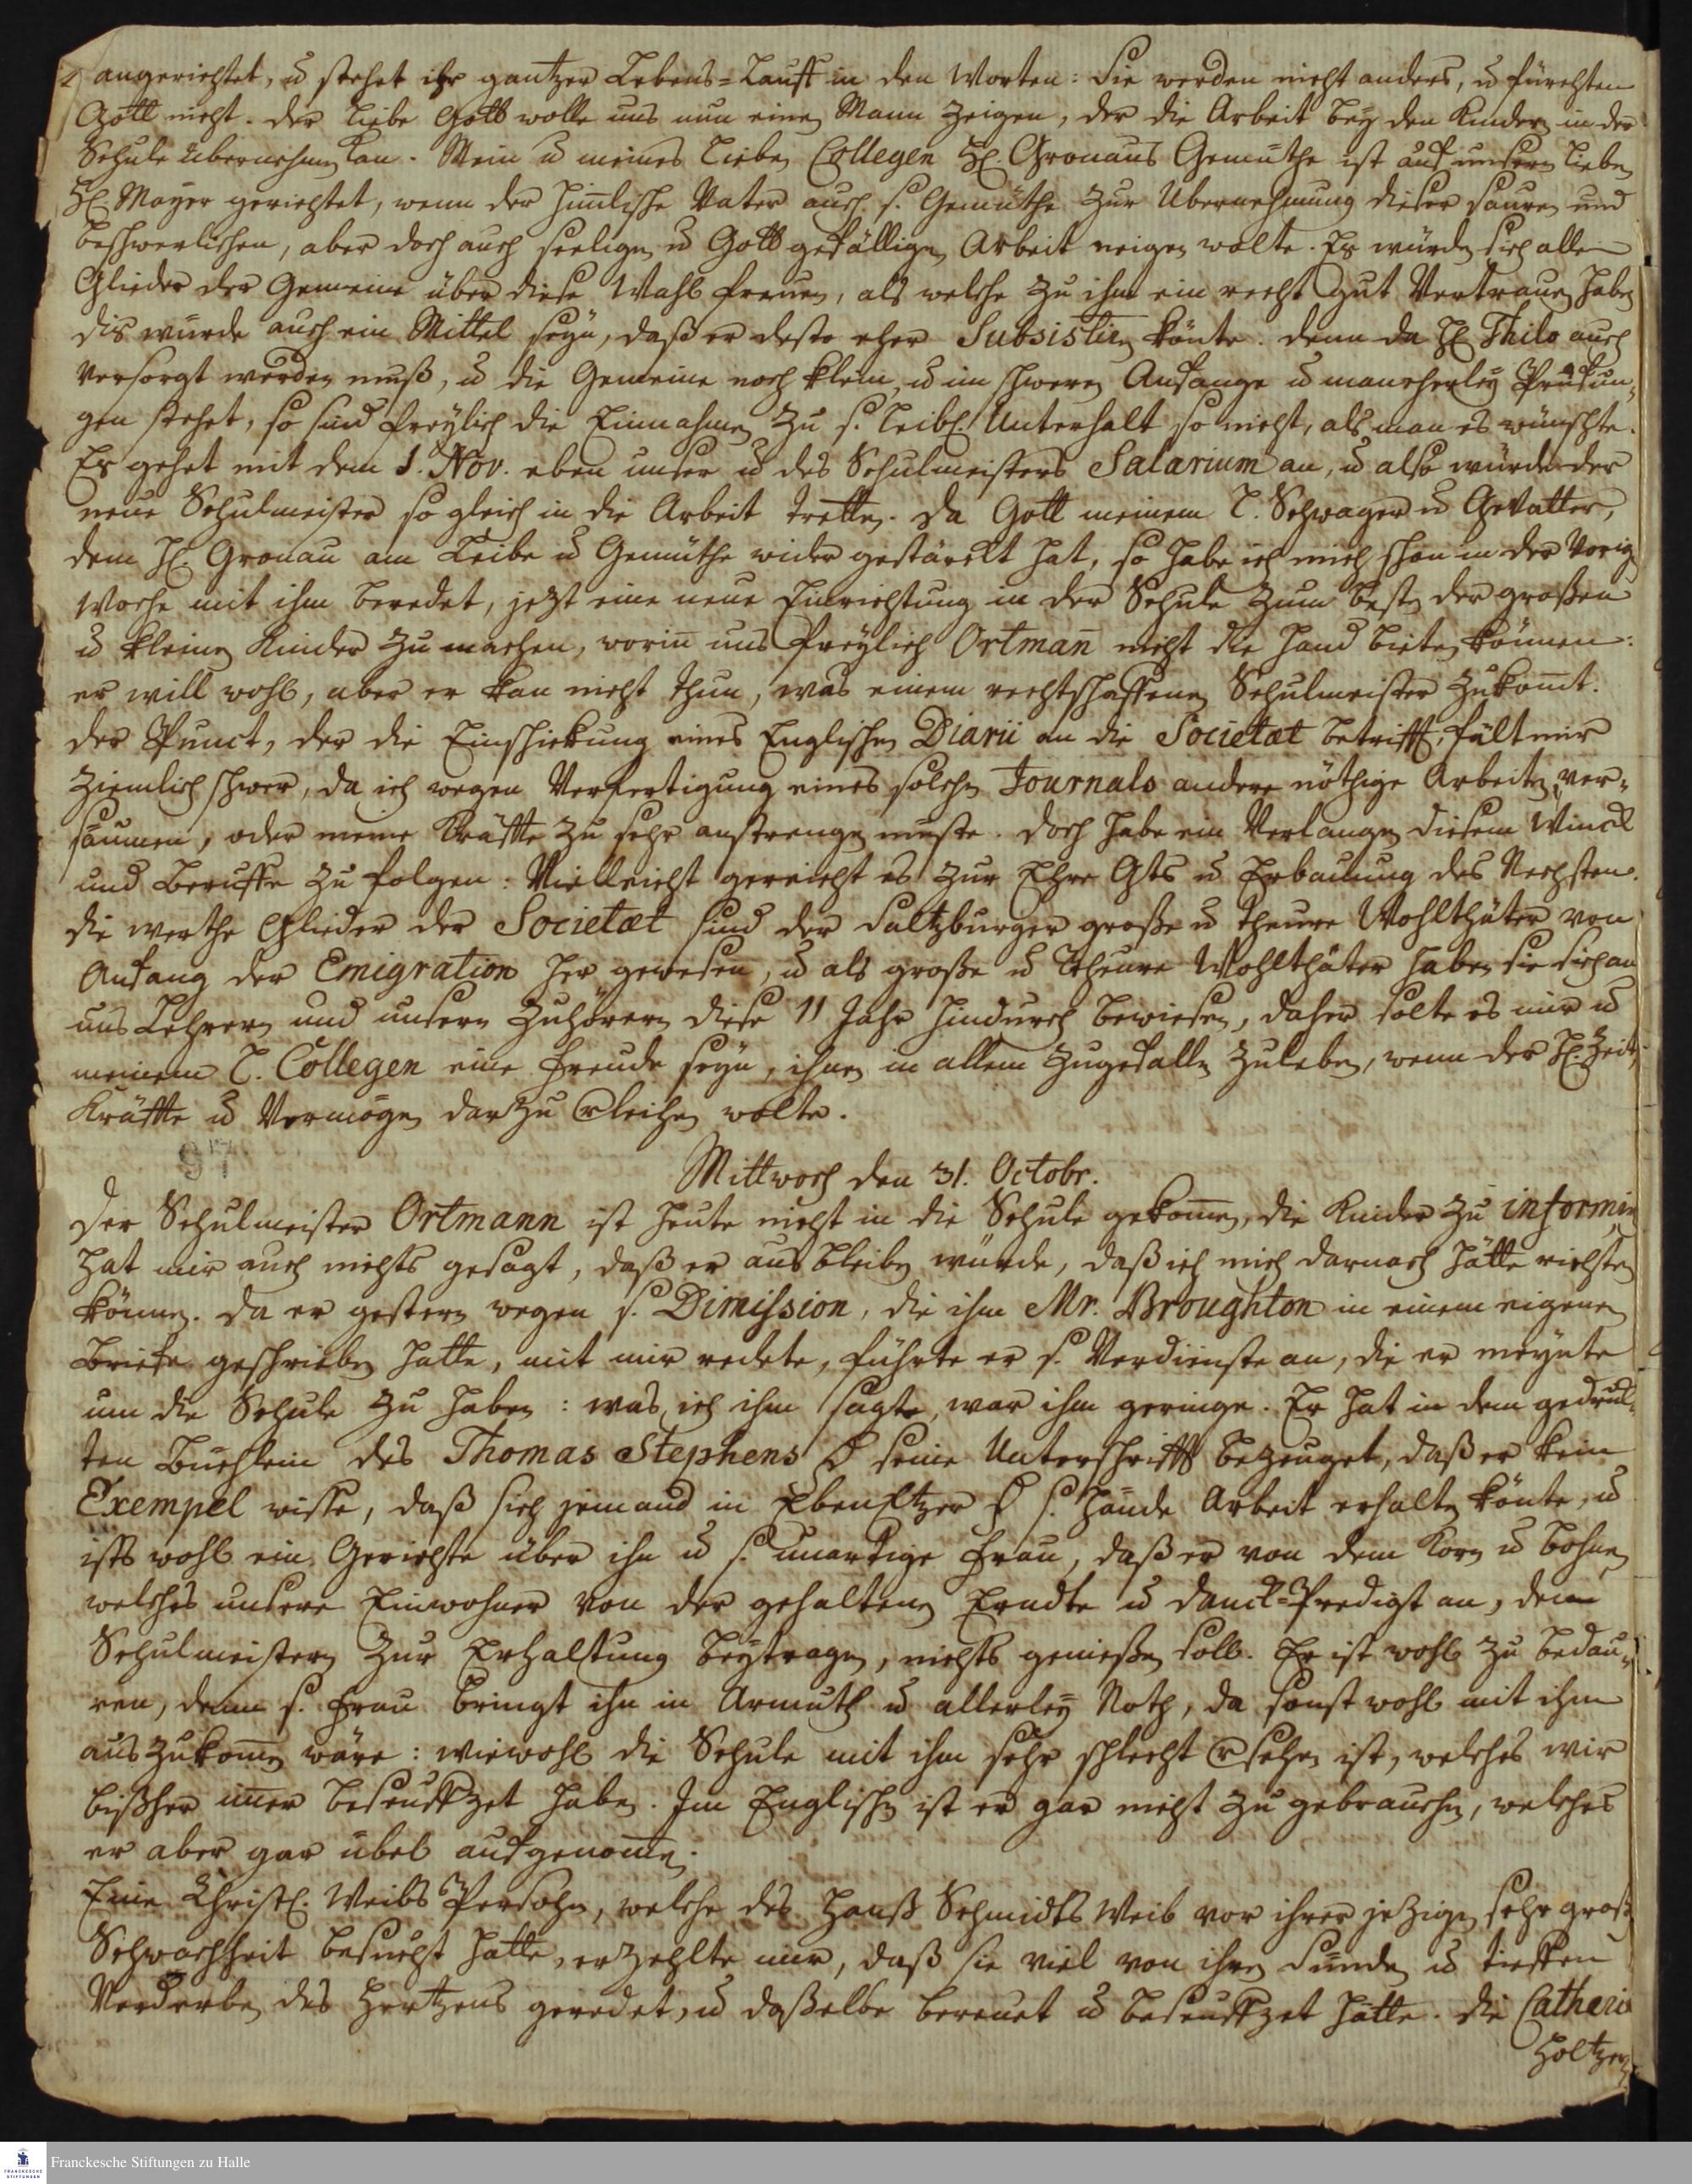 angerichtet, u stehet ihr gantzer Lebens=Lauff in den Worten: Sie werden nicht anders, u fürchten
Gott nicht. Der liebe Gott wolle uns nun einen Mann zeigen, der die Arbeit bey den Kindern in der
Schule übernehmen kan. Mein u meines lieben Collegen H. Gronaus Gemüthe ist auf unsern lieben
H. Mayer gerichtet, wenn der himlische Vater auch s. Gemüthe zur Übernehmung dieser sauren und
beschwerlichen, aber doch auch seeligen u Gott gefälligen Arbeit neigen wolte. Es würden sich alle
Glieder der Gemeine über diese Wahl freuen, als welche zu ihm ein recht gut Vertrauen haben
dis würde auch ein Mittel seyn, daß er desto eher Subsistiren könte. denn da H Thilo auch
versorgt werden muß, u die Gemeine noch klein, u im schweren Anfange u mancherley Prüfun-
gen stehet, so sind freylich die Einnahmen zu s. leibl. Unterhalt so nicht, als man es wünschte.
Es gehet mit dem 1. Nov. eben unser u des Schulmeisters Salarium an, u also würde der
neue Schulmeister so gleich in die Arbeit tretten. Da Gott meinem l. Schwager u Gevatter,
dem H. Gronau am Leibe u Gemüthe wider gestärckt hat, so habe ich mich schon in der vorigen
Woche mit ihm beredet, jezt eine neue Einrichtung in der Schule zum besten der großen
u kleinen Kinder zu machen, worin uns freylich Ortman nicht die Hand bieten können:
er will wohl, aber er kan nicht thun, was einem rechtschaffenen Schulmeister zukomt.
der Punct, der die Einschickung eines Englischen Diarii an die Societæt betrifft, fält mir
ziemlich schwer, da ich wegen Verfertigung eines solchen Journals andere nöthige Arbeiten ver-
säumen, oder meine Kräffte zu sehr anstrengen muste. doch habe ein Verlangen diesem Winck
und Beruffe zu folgen: Vielleicht gereicht es zur Ehre Gts u Erbauung des Nechsten.
die werthe Glieder der Societæt sind der Saltzburger große u theure Wohlthäter von
Anfang der Emigration her gewesen, u als große u theure Wohlthäter haben sie sich an
uns Lehrern und unsern Zuhörern diese 11 Jahr hindurch bewiesen, daher solte es mir u
meinem l. Collegen eine Freude seyn, ihnen in allem zugefallen zuleben, wenn der H. Zeit,
Kräffte u Vermögen darzu verleihen wolte.
97
Mittwoch den 31. Octobr.
Der Schulmeister Ortmann ist heute nicht in die Schule gekomen, die Kinder zu informiren
hat mir auch nichts gesagt, daß er ausbleiben würde, daß ich mich darnach hätte richten
können. Da er gestern wegen s. Dimission, die ihm Mr. Broughton in einem eigenen
Briefe geschrieben hatte, mit mir redete, führte er s. Verdienste an, die er meynte
um die Schule zu haben: was ich ihm sagte, war ihm geringe. Er hat in dem gedruk-
ten Büchlein des Thomas Stephens durch seine Unterschrifft bezeuget, daß er kein
Exempel wisse, daß sich jemand in EbenEtzer durch s. Hände Arbeit erhalten könte, u
ists wohl ein Gerichte über ihn u s. unartige Frau, daß er von dem Korn u Bohnen,
welches unsere Einwohner von der gehaltenen Erndte u Danck=Predigt an, dem
Schulmeistern zur Erhaltung beytragen, nichts genießen soll. Er ist wohl zu bedau-
ren, denn s. Frau bringt ihn in Armuth u allerley Noth, da sonst wohl mit ihm
auszukomen wäre: wiewohl die Schule mit ihm sehr schlecht versehen ist, welches wir
bißher imer beseuffzet haben. Im Englischen ist er gar nicht zu gebrauchen, welches
er aber gar übel aufgenomen.
Eine Christl. Weibs Persohn, welche des Hanß Schmidts Weib vor ihrer jezigen sehr großen
Schwachheit besucht hatte, erzehlte mir, daß sie viel von ihren Sünden u tieffen
Verderben des Hertzens geredet, u daßelbe bereuet u beseuffzet hätte. die Catharin
Holtzern
Franckesche Stiftungen zu Halle